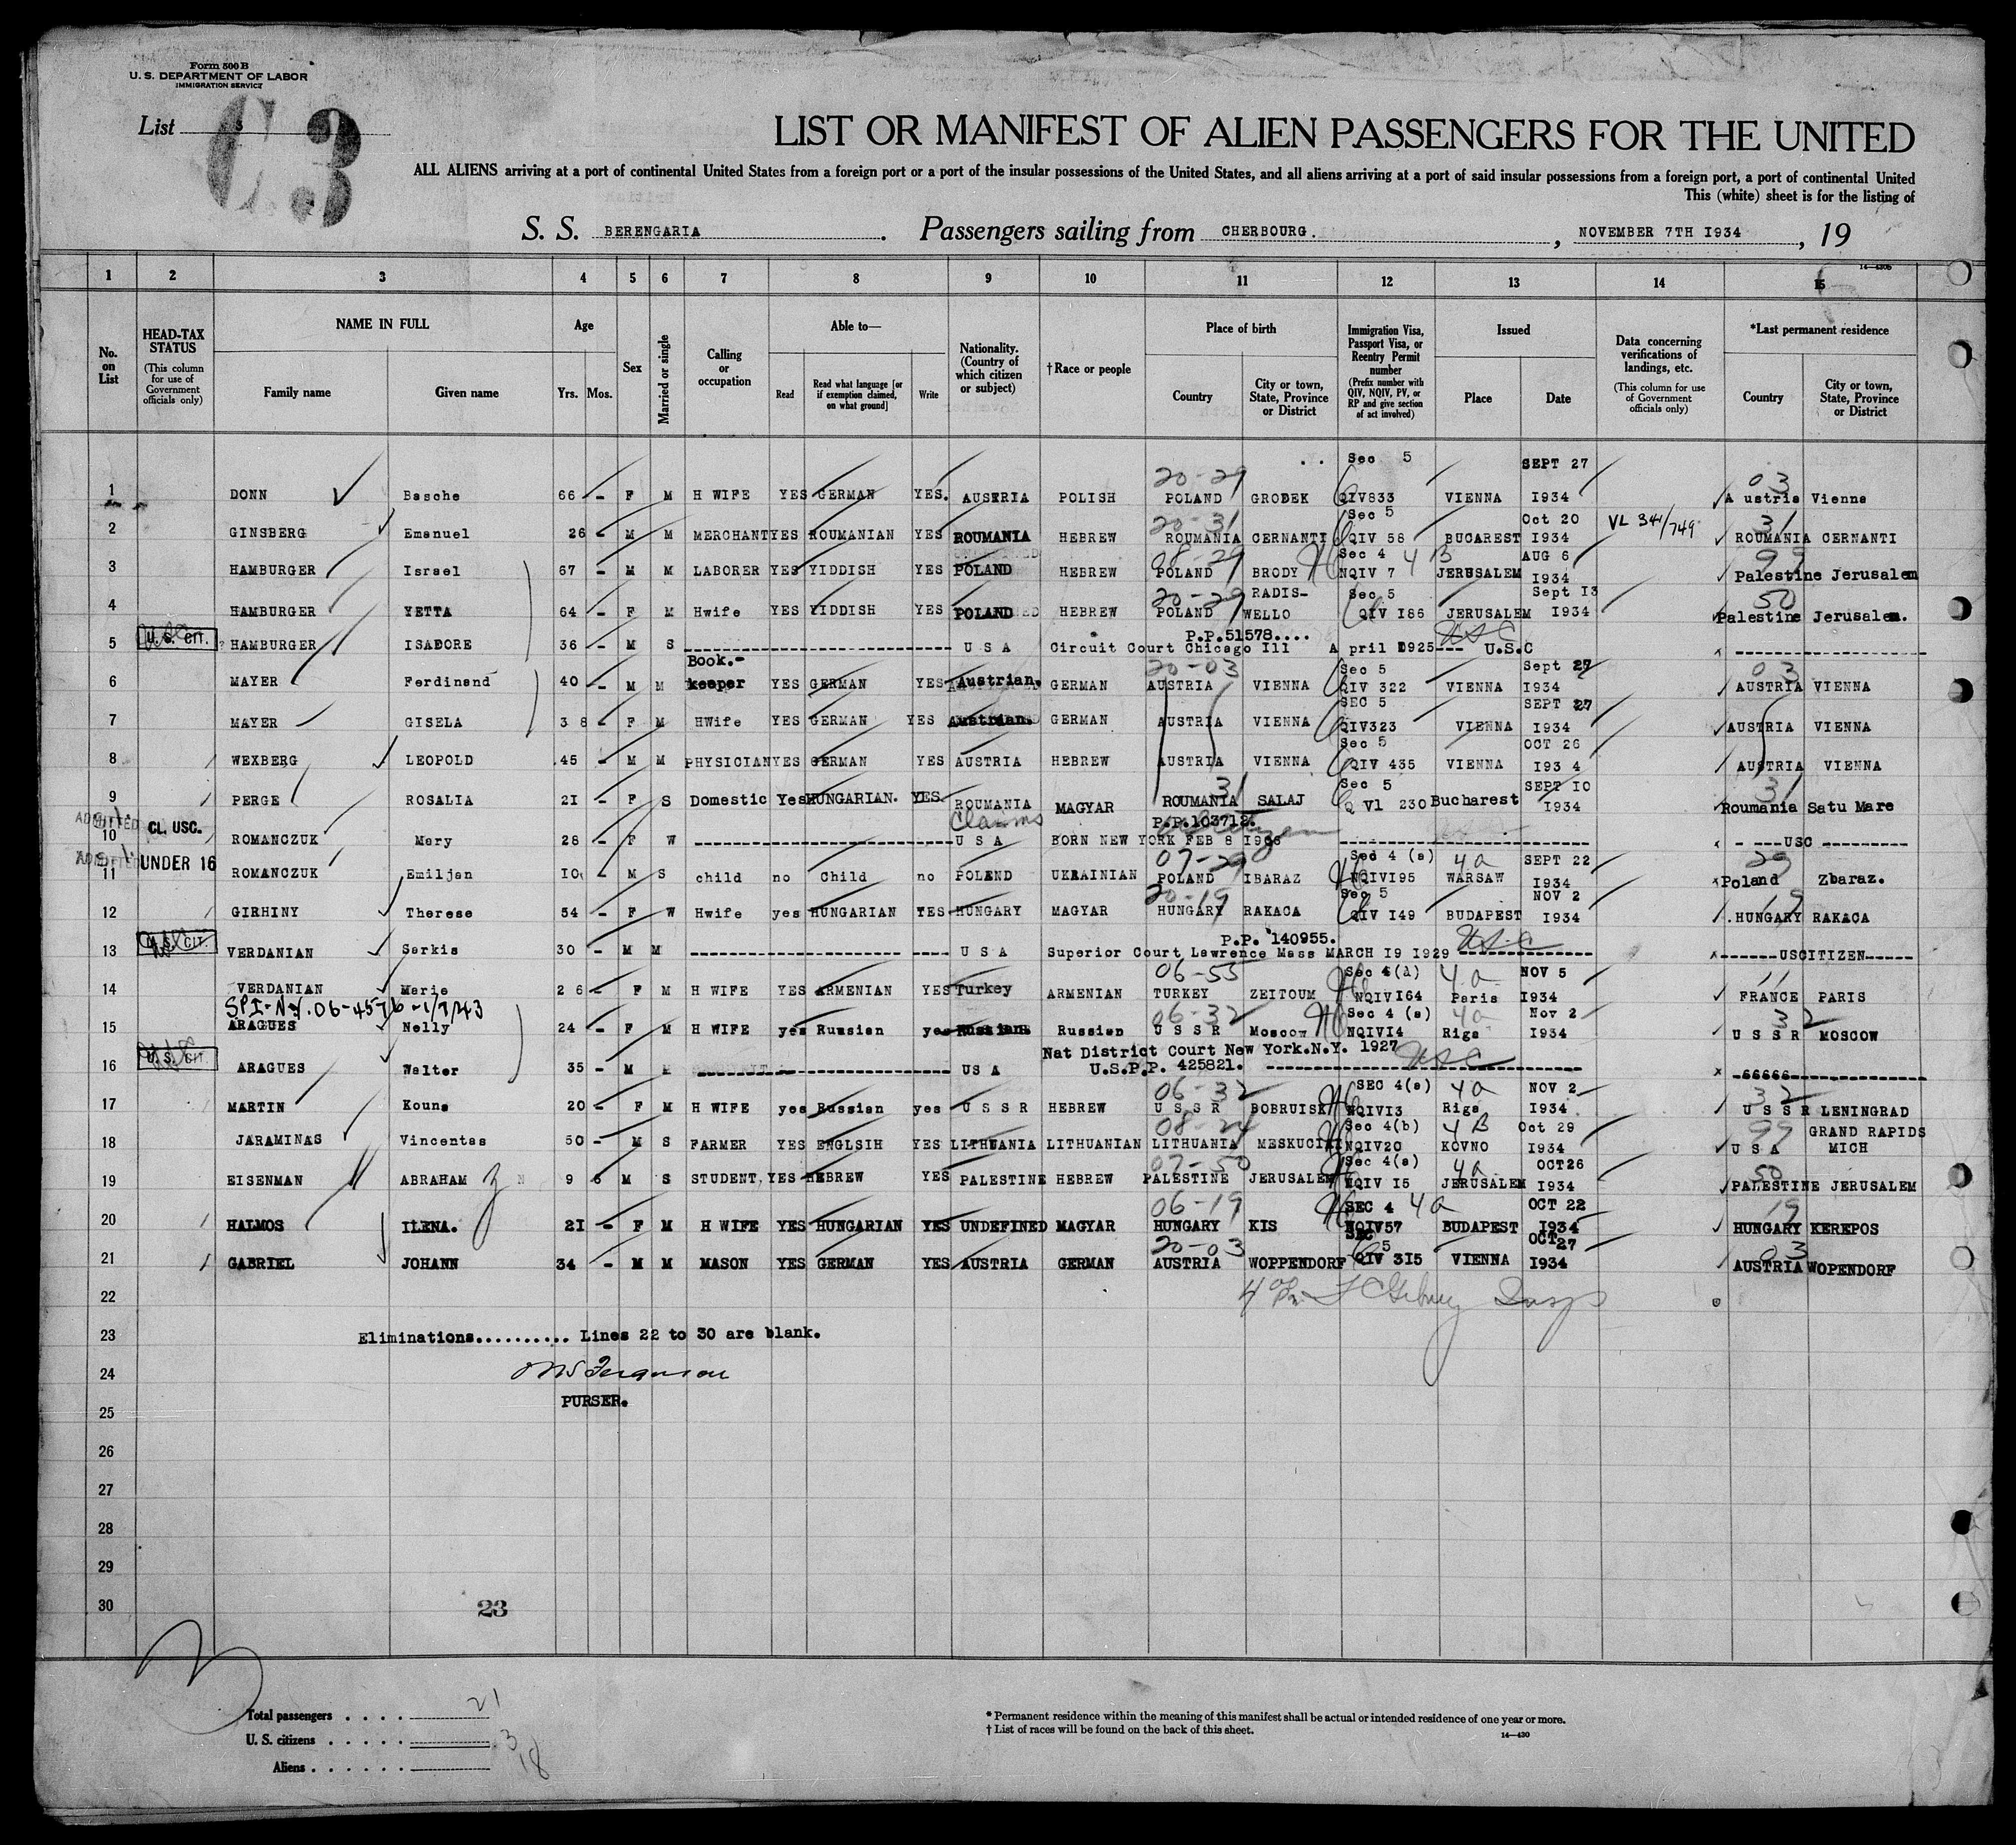 Form 500 B
U. S. DEPARTMENT OF LABOR
IMMIGRATION SERVICE
List 3
C 3
LIST OR MANIFEST OF ALIEN PASSENGERS FOR THE UNITED
ALL ALIENS arriving at a port of continental United States from a foreign port or a port of the insular possessions of the United States, and all aliens arriving at a port of said insular possessions from a foreign port, a port of continental United
This (white) sheet is for the listing of
S. S. BERENGARIA. Passengers sailing from CHERBOURG. , NOVEMBER 7TH I934 , 19
14—430b
1 2 3 4 5 6 7 8 9 10 11 12 13 14 15
No. on List
HEAD-TAX STATUS (This column for use of Government officials only)
NAME IN FULL
Family name
Given name
Age
Yrs. Mos.
Sex
Married or single
Calling or occupation
Able to—
Read
Read what language [or if exemption claimed, on what ground]
Write
Nationality. (Country of which citizen or subject)
†Race or people
Place of birth
Country
City or town, State, Province or District
Immigration Visa, Passport Visa, or Reentry Permit number (Prefix number with QIV, NQIV, PV, or RP and give section of act involved)
Issued
Place
Date
Data concerning verifications of landings, etc. (This column for use of Government officials only)
*Last permanent residence
Country
City or town, State, Province or District
20-29 Sec 5 SEPT 27 03
1 DONN Basche 66 - F M H WIFE YES GERMAN YES. AUSTRIA POLISH POLAND GRODEK QIV833 VIENNA I934 A ustria Vienna
20-31 Sec 5 Oct 20 VL 341/749 31
2 GINSBERG Emanuel 26 - M M MERCHANT YES ROUMANIAN YES ROUMANIA HEBREW ROUMANIA CERNANTI QIV 58 BUCAREST I934 ROUMANIA CERNANTI
08-29 Sec 4 4 B AUG 6 99
3 HAMBURGER Israel 67 - M M LABORER YES YIDDISH YES POLAND HEBREW POLAND BRODY NQIV 7 JERUSALEM I934 Palestine Jerusalem
20-29 RADIS- Sec 5 Sept I3 50
4 HAMBURGER YETTA 64 - F M Hwife YES YIDDISH YES POLAND HEBREW POLAND WELLO QIV I86 JERUSALEM I934 Palestine Jerusalem.
U.S. CIT. P.P.51578.... USC
5 HAMBURGER ISADORE 36 - M S ---------- U S A Circuit Court Chicago Ill A pril 1925--- U.S.C ----------
Book.- 20-03 Sec 5 Sept 27 03
6 MAYER Ferdinand 40 - M M keeper YES GERMAN YES Austrian. GERMAN AUSTRIA VIENNA QIV 322 VIENNA I934 AUSTRIA VIENNA
SEC 5 SEPT 27
7 MAYER GISELA 3 8 - F M HWife YES GERMAN YES Austrian. GERMAN AUSTRIA VIENNA QIV323 VIENNA I934 AUSTRIA VIENNA
Sec 5 OCT 26
8 WEXBERG LEOPOLD .45 - M M PHYSICIAN YES GERMAN YES AUSTRIA HEBREW AUSTRIA VIENNA QIV 435 VIENNA I93 4 AUSTRIA VIENNA
31 Sec 5 SEPT IO 31
9 PERGE ROSALIA 2I - F S Domestic Yes HUNGARIAN. YES. ROUMANIA MAGYAR ROUMANIA SALAJ Q Vl 230 Bucharest I934 Roumania Satu Mare
ADMITTED CL. USC. Claims P.P.103712. citizen
10 ROMANCZUK Mary 28 - F W ---------- U S A BORN NEW YORK FEB 8 I906 ---------- - ---USC ---------
ADMITTED UNDER 16 07-29 Sec 4 (a) 4a SEPT 22 29
11 ROMANCZUK Emiljan IO - M S child no Child no POLEND UKRAINIAN POLAND IBARAZ NQIVI95 WARSAW I934 Poland Zbaraz.
20-19 Sec 5 NOV 2 19
12 GIRHINY Therese 54 - F W Hwife yes HUNGARIAN YES HUNGARY MAGYAR HUNGARY RAKACA QIV I49 BUDAPEST I934 .HUNGARY RAKACA
U.S. CIT. P.P. 140955. USC
13 VERDANIAN Sarkis 30 - M M ---------- U S A Superior Court Lawrence Mass MARCH I9 I929 ---------- ------USCITIZEN-----
06-55 Sec 4(a) 4a NOV 5 11
14 VERDANIAN Marie 2 6 - F M H WIFE YES ARMENIAN YES Turkey ARMENIAN TURKEY ZEITOUM NQIVI64 Paris I934 FRANCE PARIS
SPI-N.Y. 06-4576-1/7/43 06-32 Sec 4 (a) 4a Nov 2 32
15 ARAGUES Nelly 24 - F M H WIFE yes Russian yes Russian Russian U S S R Moscow NQIVI4 Riga I934 U S S R MOSCOW
U.S. CIT. Nat District Court New York.N.Y. 1927 USC
16 ARAGUES Walter 35 - M M ---------- US A U.S.P.P. 425821. ---------- -66666----------
06-32 SEC 4(a) 4a NOV 2 32
17 MARTIN Kouna 20 - F M H WIFE yes Russian yes U S S R HEBREW U S S R BOBRUISK NQIVI3 Riga I934 U S S R LENINGRAD
08-24 Sec 4(b) 4B Oct 29 99 GRAND RAPIDS
18 JARAMINAS Vincentas 50 - M S FARMER YES ENGLSIH YES LITHUANIA LITHUANIAN LITHUANIA MESKUCIAI NQIV20 KOVNO I934 U S A MICH
07-50 Sec 4(a) 4a OCT26 50
19 EISENMAN ABRAHAM 9 6 M S STUDENT. YES HEBREW YES PALESTINE HEBREW PALESTINE JERUSALEM NQIV I5 JERUSALEM I934 PALESTINE JERUSALEM
06-19 SEC 4 4a OCT 22 19
20 HALMOS ILENA. 2I - F M H WIFE YES HUNGARIAN YES UNDEFINED MAGYAR HUNGARY KIS NQIV57 BUDAPEST I934 HUNGARY KEREPOS
20-03 SEC 5 OCT 27 03
21 GABRIEL JOHANN 34 - M M MASON YES GERMAN YES AUSTRIA GERMAN AUSTRIA WOPPENDORF QIV 3I5 VIENNA I934 AUSTRIA WOPENDORF
22
23 Eliminations.......... Lines 22 to 30 are blank.
24 Ferguson
25 PURSER.
26
27
28
29
30 23
Total passengers . . . . 21
U. S. citizens . . . . . 3
Aliens . . . . . . 18
* Permanent residence within the meaning of this manifest shall be actual or intended residence of one year or more.
† List of races will be found on the back of this sheet.
14—430